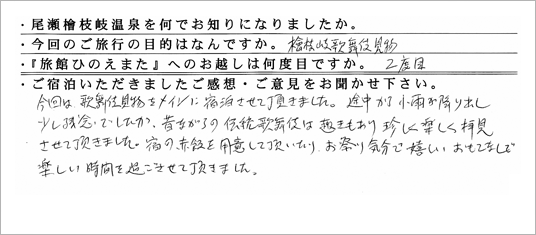 ・尾瀬檜枝岐温泉を何でお知りになりましたか。
・今回のご旅行の目的はなんですか。檜枝岐歌舞伎見物
・『旅館ひのえまた』へのお越しは何度目ですか。2度目
・ご宿泊いただきましたご感想・ご意見をお聞かせ下さい。
今回は歌舞伎見物をメインに宿泊させて頂きました。途中から小雨が降り出し
少し残念でしたが、昔ながらの伝統歌舞伎は趣きもあり珍しく楽しく拝見
させて頂きました。宿の赤飯を用意して頂いたり、お祭り気分で嬉しいおもてなしで
楽しい時間を過ごさせて頂きました。